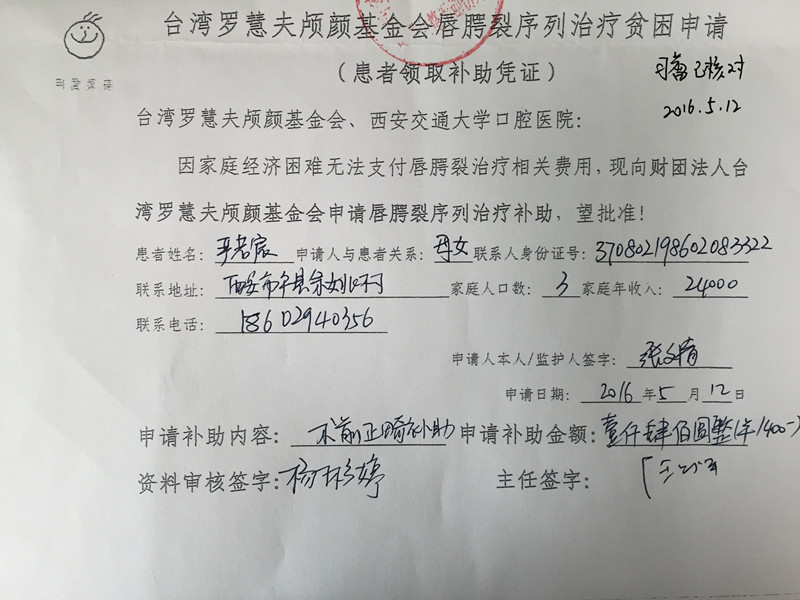 台湾罗慧夫颅颜基金会唇腭裂序列治疗贫困申请
（患者领取补助凭证）
已核对
2016.5.12
台湾罗慧夫颅颜基金会、西安交通大学口腔医院：
因家庭经济困难无法支付唇腭裂治疗相关费用，现向财团法人台
湾罗慧夫颅颜基金会申请唇腭裂序列治疗补助，望批准！
患者姓名： 申请人与患者关系：母女 联系人身份证号：370802198602083322
联系地址：西安市 家庭人口数：3 家庭年收入：24000
联系电话：18602940356
申请人本人/监护人签字：张文娟
申请日期：2016 年 5 月 12 日
申请补助内容：术前正畸补助 申请补助金额：壹仟肆佰圆整(¥1400-)
资料审核签字：杨彩婷 主任签字：